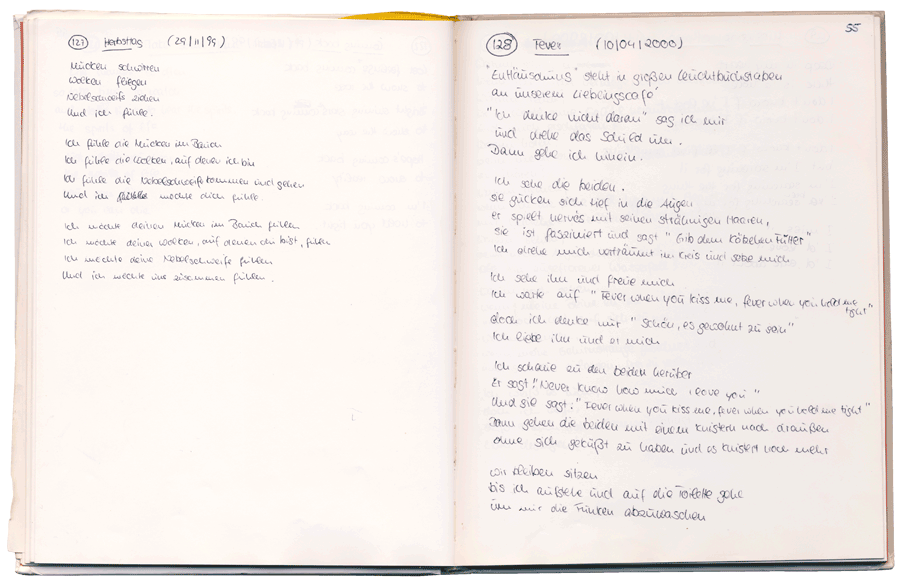 127 Herbsttag (29/11/99)
Mücken schwirren
Wolken fliegen
Nebelschweife ziehen
Und ich fühle.
Ich fühle die Mücken im Bauch
Ich fühle die Wolken, auf denen ich bin
Ich fühle die Nebelschweife kommen und gehen
Und ich möchte dich fühlen.
Ich möchte deinen Mücken im Bauch fühlen
Ich möchte deine Wolken, auf denen du bist, fühlen
Ich möchte deine Nebelschweife fühlen
Und ich möchte uns zusammen fühlen.
55
128 Fever (10/04/2000)
"Enthäusamus" steht in großen Leuchtbuchstaben
an unserem Lieblingscafé
"Ich denke nicht daran" sag ich mir
und drehe das Schild um.
Dann gehe ich hinein.
Ich sehe die beiden.
sie gucken sich tief in die Augen
er spielt nervös mit seinen strähnigen Haaren,
sie ist fasziniert und sagt "Gib dem Köbchen Futter"
Ich drehe mich verträumt im Kreis und setze mich
Ich sehe ihn und freue mich
Ich warte auf "Fever when you kiss me, fever when you hold me tight"
doch ich denke mir "schön, es gewohnt zu sein"
Ich liebe ihn und er mich
Ich schaue zu den beiden herüber
Er sagt: "Never know how much I love you"
Und sie sagt: "Fever when you kiss me, fever when you hold me tight"
Dann gehen die beiden mit einem Knistern nach draußen
ohne sich geküßt zu haben und es knistert noch mehr
Wir bleiben sitzen
bis ich aufstehe und auf die Toilette gehe
um mir die Funken abzuwaschen